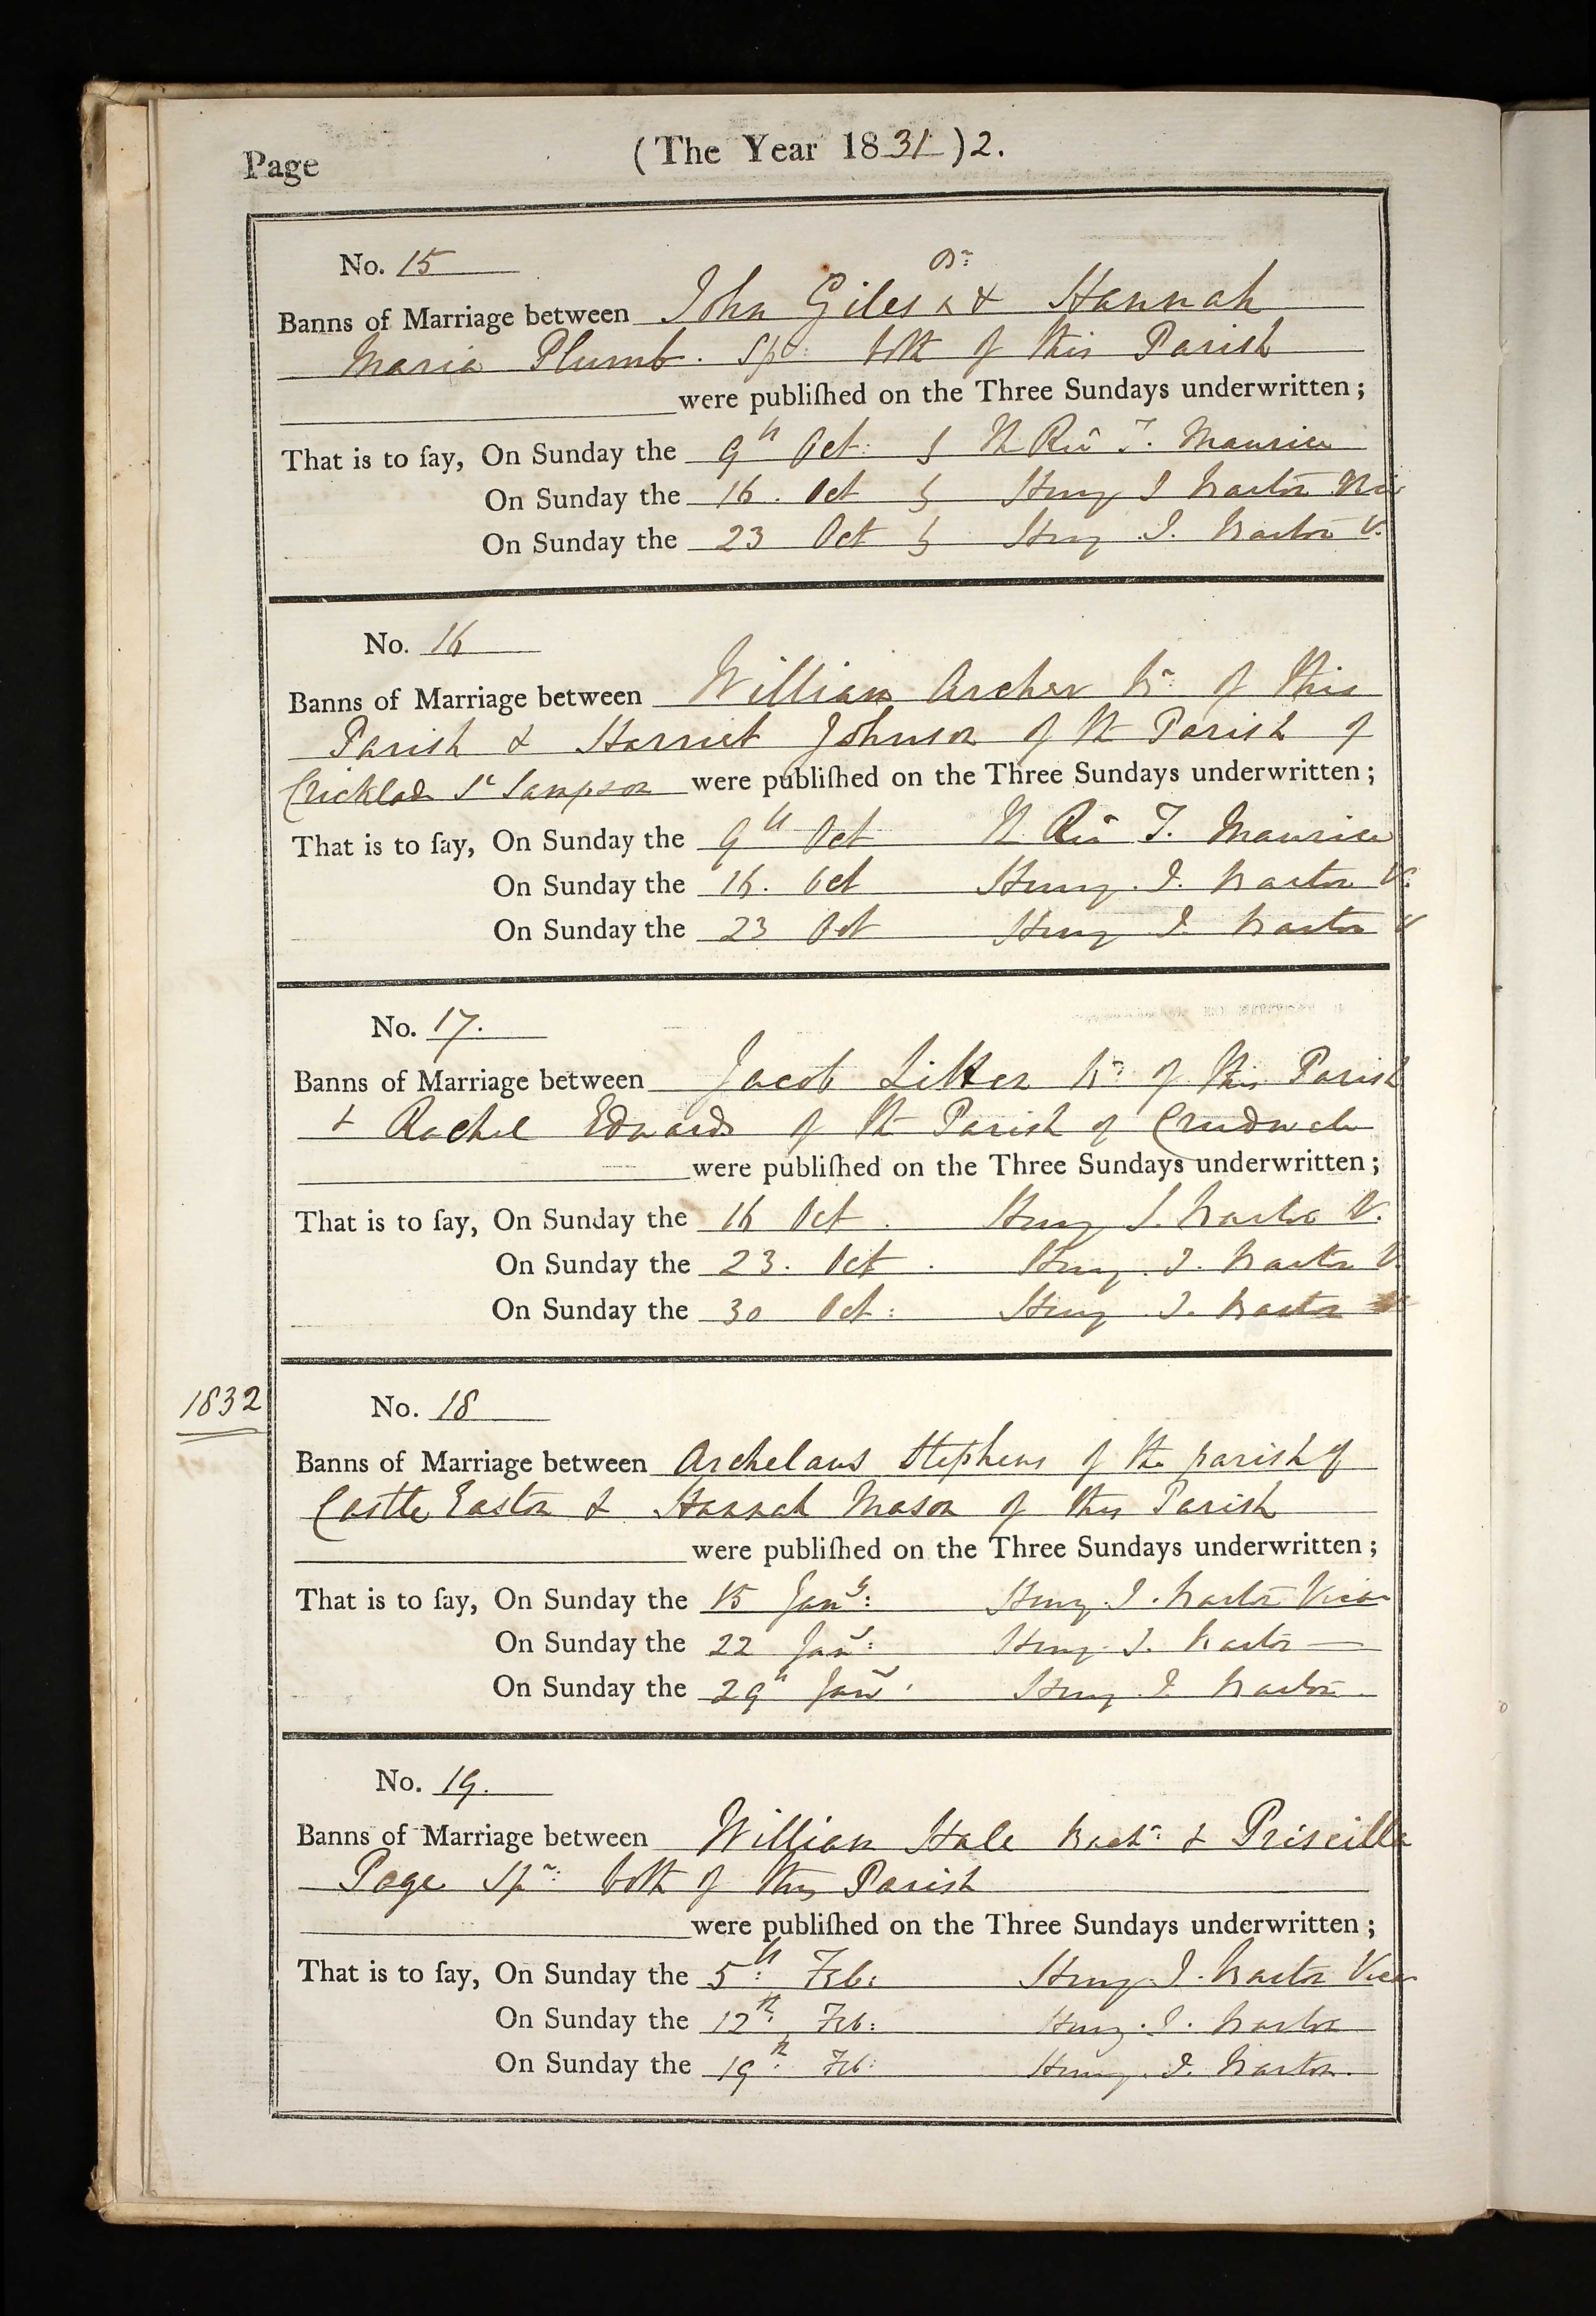 Page
(The Year 1831)2.
No. 15
Br:
Banns of Marriage between John Giles ^ & Hannah
Maria Plumb. Spr: both of this Parish
were publiſhed on the Three Sundays underwritten;
That is to ſay, On Sunday the 9th Oct: by Th Rev T. Maurice
On Sunday the 16. Oct by Henry I Barton
On Sunday the 23 Oct by Henry I. Barton V.
No. 16
Banns of Marriage between William Archer Br: of this
Parish & Harriet Johnson of th Parish of
Cricklade St Sampson were publiſhed on the Three Sundays underwritten;
That is to ſay, On Sunday the 9th Oct Th Rev T. Maurice
On Sunday the 16. Oct Henry. I. Barton V.
On Sunday the 23 Oct Henry I. Barton V
No. 17.
Banns of Marriage between Jacob Litten Br: of this Parish
& Rachel Edwards of th Parish of Crudwell
were publiſhed on the Three Sundays underwritten;
That is to ſay, On Sunday the 16 Oct. Henry I. Barton V.
On Sunday the 23. Oct. Henry. I. Barton V.
On Sunday the 30 Oct: Henry I. Barton
1832
No. 18
Banns of Marriage between Archelaus Stephens of the parish of
Castle Eaton & Hannah Mason of this Parish
were publiſhed on the Three Sundays underwritten;
That is to ſay, On Sunday the 15 Jany: Henry. I. Barton Vicar
On Sunday the 22 Jany: Henry. I. Barton
On Sunday the 29th Jany. Henry I. Barton
No. 19.
Banns of Marriage between William Hale Bachr: & Priscilla
Page Spr: both of this Parish
were publiſhed on the Three Sundays underwritten;
That is to ſay, On Sunday the 5th: Feb: Henry I. Barton Vicar
On Sunday the 12th: Feb: Henry. I. Barton
On Sunday the 19th: Feb: Henry. I. Barton.